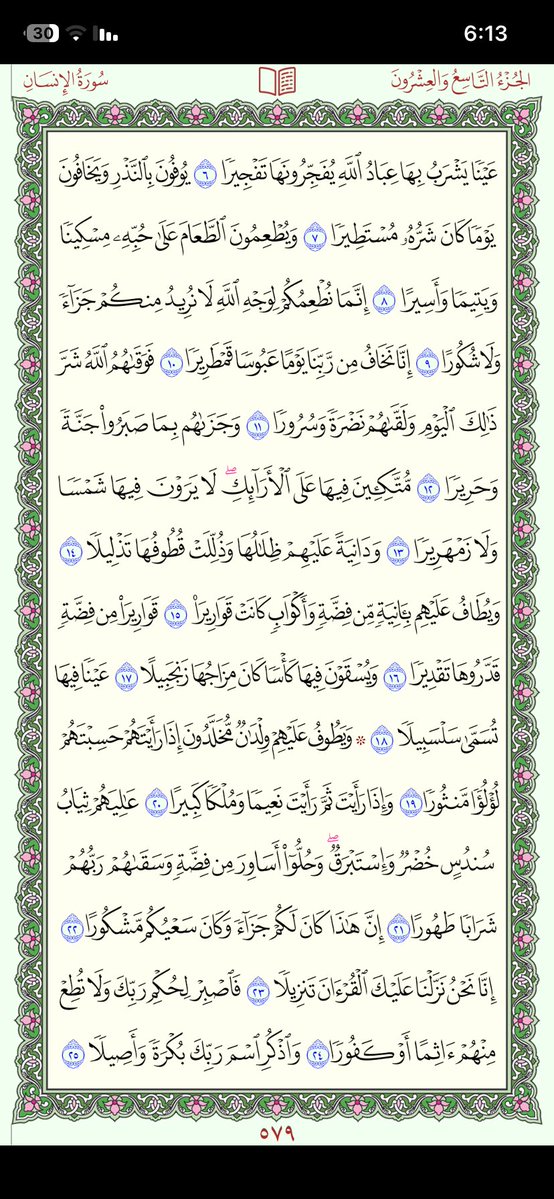 30
6:13
سُورَةُ الإِنسَانِ
الجُزْءُ التَّاسِعُ وَالعِشْرُونَ
عَيْنًا يَشْرَبُ بِهَا عِبَادُ ٱللَّهِ يُفَجِّرُونَهَا تَفْجِيرًا ٦ يُوفُونَ بِٱلنَّذْرِ وَيَخَافُونَ
يَوْمًا كَانَ شَرُّهُۥ مُسْتَطِيرًا ٧ وَيُطْعِمُونَ ٱلطَّعَامَ عَلَىٰ حُبِّهِۦ مِسْكِينًا
وَيَتِيمًا وَأَسِيرًا ٨ إِنَّمَا نُطْعِمُكُمْ لِوَجْهِ ٱللَّهِ لَا نُرِيدُ مِنكُمْ جَزَآءً
وَلَا شُكُورًا ٩ إِنَّا نَخَافُ مِن رَّبِّنَا يَوْمًا عَبُوسًا قَمْطَرِيرًا ١٠ فَوَقَىٰهُمُ ٱللَّهُ شَرَّ
ذَٰلِكَ ٱلْيَوْمِ وَلَقَّىٰهُمْ نَضْرَةً وَسُرُورًا ١١ وَجَزَىٰهُم بِمَا صَبَرُوا۟ جَنَّةً
وَحَرِيرًا ١٢ مُّتَّكِـِٔينَ فِيهَا عَلَى ٱلْأَرَآئِكِ ۖ لَا يَرَوْنَ فِيهَا شَمْسًا
وَلَا زَمْهَرِيرًا ١٣ وَدَانِيَةً عَلَيْهِمْ ظِلَٰلُهَا وَذُلِّلَتْ قُطُوفُهَا تَذْلِيلًا ١٤
وَيُطَافُ عَلَيْهِم بِـَٔانِيَةٍ مِّن فِضَّةٍ وَأَكْوَابٍ كَانَتْ قَوَارِيرَا۠ ١٥ قَوَارِيرَا۟ مِن فِضَّةٍ
قَدَّرُوهَا تَقْدِيرًا ١٦ وَيُسْقَوْنَ فِيهَا كَأْسًا كَانَ مِزَاجُهَا زَنجَبِيلًا ١٧ عَيْنًا فِيهَا
تُسَمَّىٰ سَلْسَبِيلًا ١٨ ۞ وَيَطُوفُ عَلَيْهِمْ وِلْدَٰنٌ مُّخَلَّدُونَ إِذَا رَأَيْتَهُمْ حَسِبْتَهُمْ
لُؤْلُؤًا مَّنثُورًا ١٩ وَإِذَا رَأَيْتَ ثَمَّ رَأَيْتَ نَعِيمًا وَمُلْكًا كَبِيرًا ٢٠ عَٰلِيَهُمْ ثِيَابُ
سُندُسٍ خُضْرٌ وَإِسْتَبْرَقٌ ۖ وَحُلُّوٓا۟ أَسَاوِرَ مِن فِضَّةٍ وَسَقَىٰهُمْ رَبُّهُمْ
شَرَابًا طَهُورًا ٢١ إِنَّ هَٰذَا كَانَ لَكُمْ جَزَآءً وَكَانَ سَعْيُكُم مَّشْكُورًا ٢٢
إِنَّا نَحْنُ نَزَّلْنَا عَلَيْكَ ٱلْقُرْءَانَ تَنزِيلًا ٢٣ فَٱصْبِرْ لِحُكْمِ رَبِّكَ وَلَا تُطِعْ
مِنْهُمْ ءَاثِمًا أَوْ كَفُورًا ٢٤ وَٱذْكُرِ ٱسْمَ رَبِّكَ بُكْرَةً وَأَصِيلًا ٢٥
٥٧٩